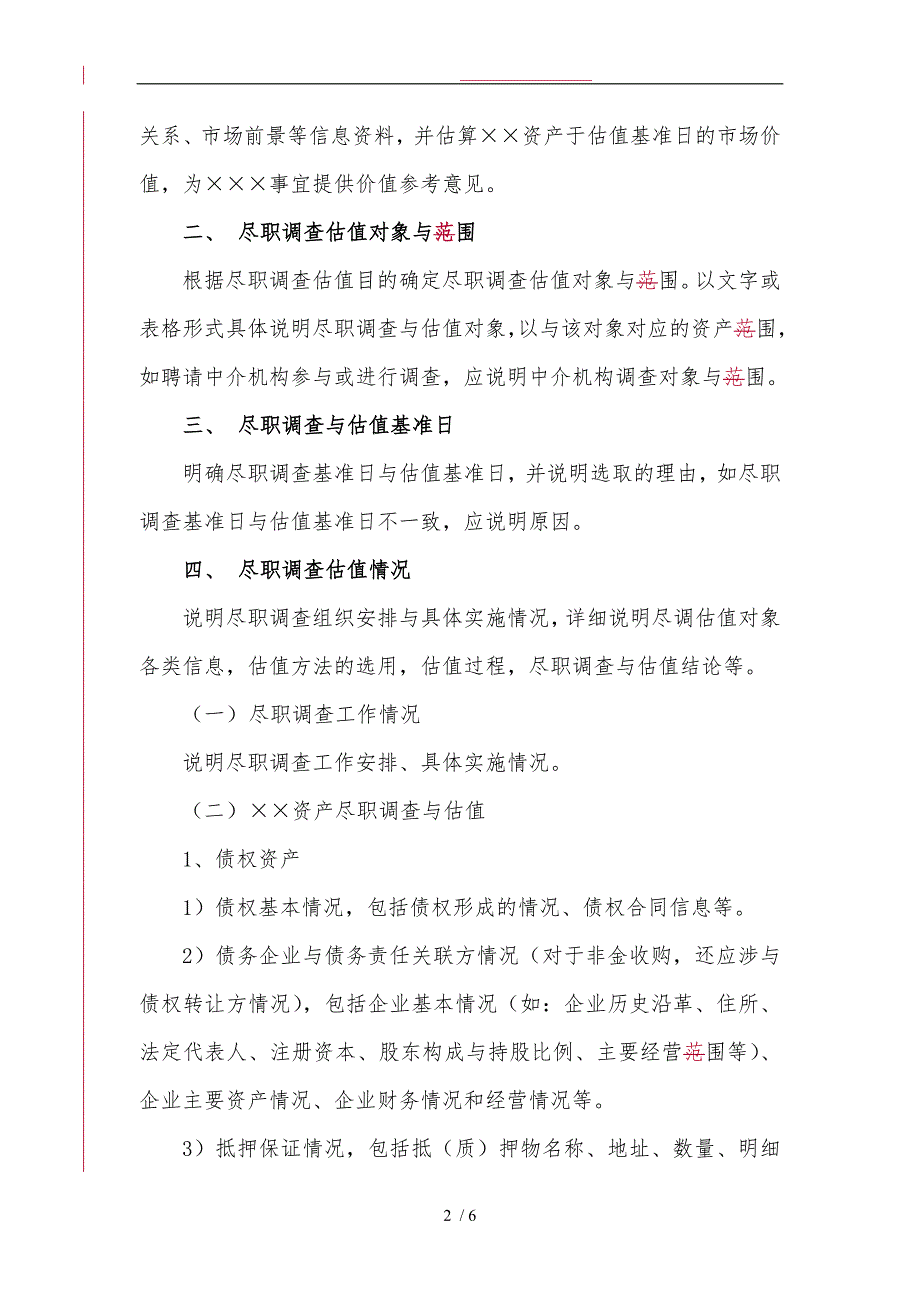 关系、市场前景等信息资料，并估算××资产于估值基准日的市场价
值，为×××事宜提供价值参考意见。
二、 尽职调查估值对象与范围
根据尽职调查估值目的确定尽职调查估值对象与范围。以文字或
表格形式具体说明尽职调查与估值对象，以与该对象对应的资产范围，
如聘请中介机构参与或进行调查，应说明中介机构调查对象与范围。
三、 尽职调查与估值基准日
明确尽职调查基准日与估值基准日，并说明选取的理由，如尽职
调查基准日与估值基准日不一致，应说明原因。
四、 尽职调查估值情况
说明尽职调查组织安排与具体实施情况，详细说明尽调估值对象
各类信息，估值方法的选用，估值过程，尽职调查与估值结论等。
（一）尽职调查工作情况
说明尽职调查工作安排、具体实施情况。
（二）××资产尽职调查与估值
1、债权资产
1）债权基本情况，包括债权形成的情况、债权合同信息等。
2）债务企业与债务责任关联方情况（对于非金收购，还应涉与
债权转让方情况），包括企业基本情况（如：企业历史沿革、住所、
法定代表人、注册资本、股东构成与持股比例、主要经营范围等）、
企业主要资产情况、企业财务情况和经营情况等。
3）抵押保证情况，包括抵（质）押物名称、地址、数量、明细
2 / 6